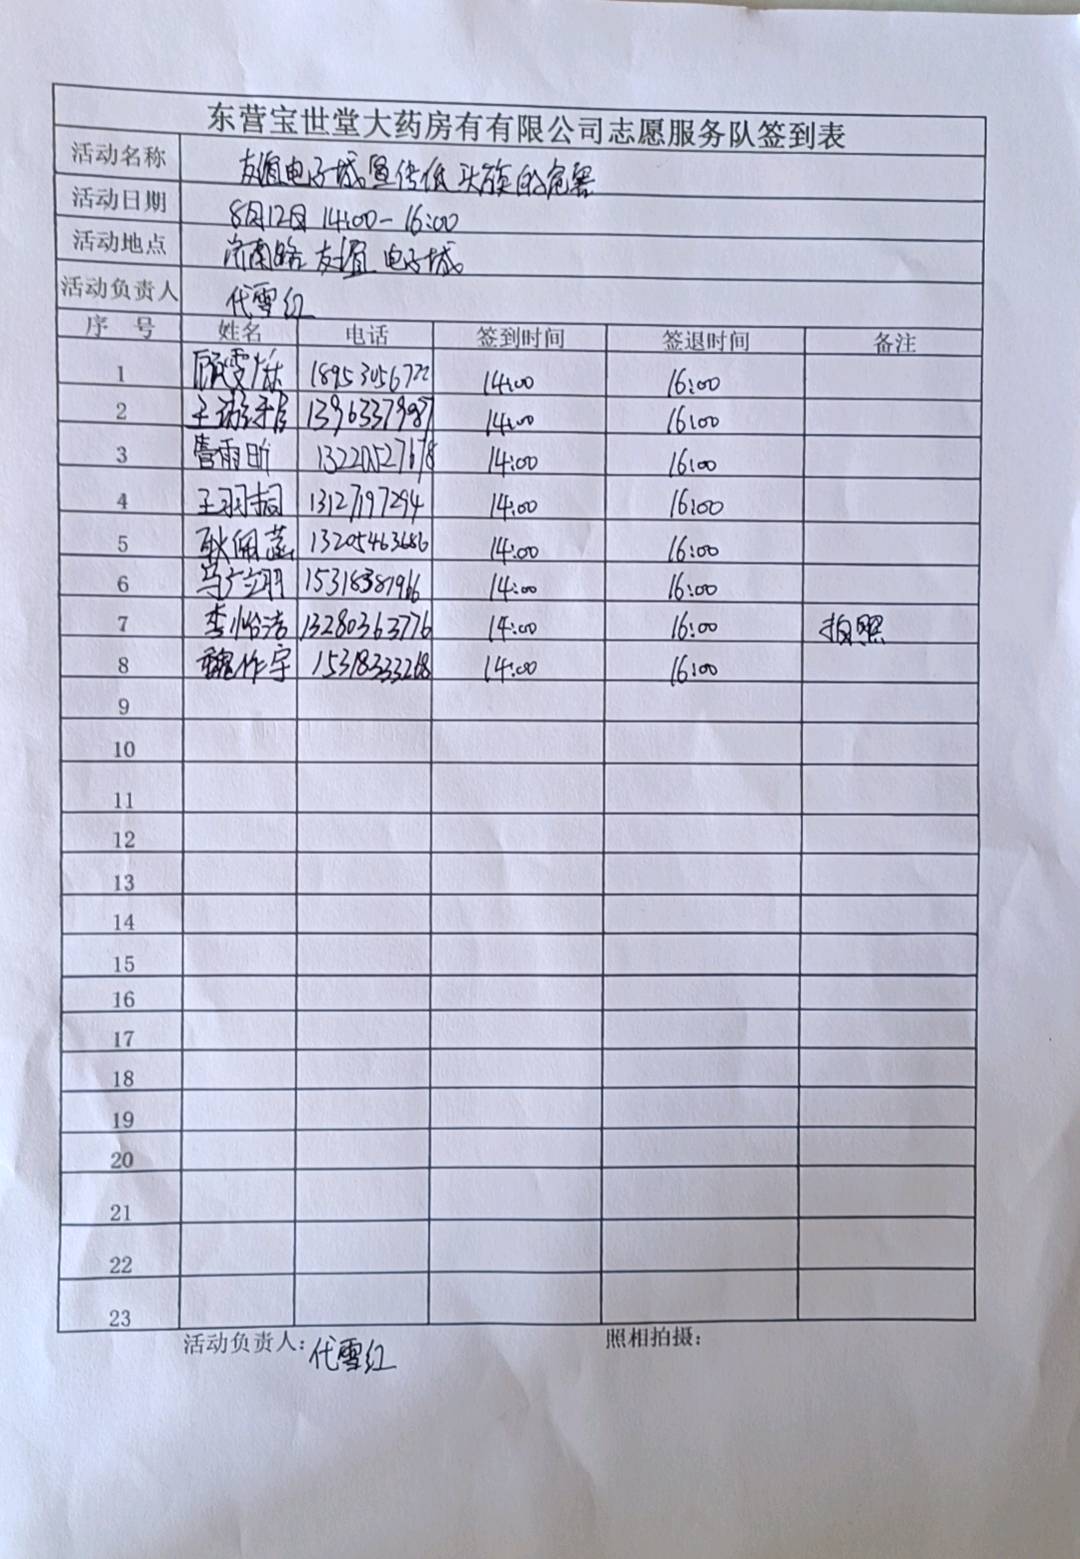 东营宝世堂大药房有有限公司志愿服务队签到表
活动名称 友谊电子城宣传低头族的危害
活动日期 8月12日 14:00-16:00
活动地点 济南路友谊电子城
活动负责人 代雪红
序 号 姓名 电话 签到时间 签退时间 备注
1 顾雯 18953056722 14:00 16:00
2 王 13963379987 14:00 16:00
3 管雨昕 13220527678 14:00 16:00
4 王羽桐 13127197294 14:00 16:00
5 耿佩蕊 13205463686 14:00 16:00
6 马广羽 15318381966 14:00 16:00
7 李怡洁 13280363776 14:00 16:00 拍照
8 魏作宇 15318333268 14:00 16:00
9
10
11
12
13
14
15
16
17
18
19
20
21
22
23
活动负责人：代雪红 照相拍摄：